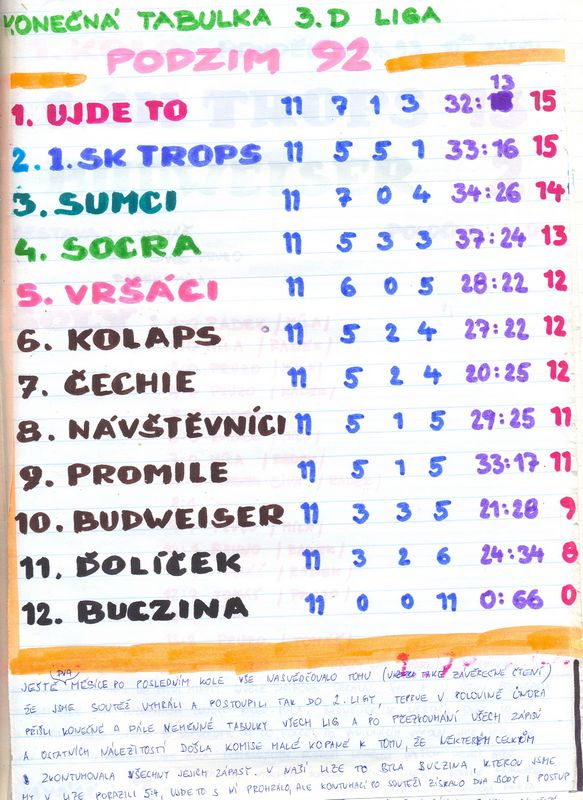 KONEČNÁ TABULKA 3.D LIGA
PODZIM 92
1. UJDE TO 11 7 1 3 32:13 15
2. 1.SK TROPS 11 5 5 1 33:16 15
3. SUMCI 11 7 0 4 34:26 14
4. SOCRA 11 5 3 3 37:24 13
5. VRŠÁCI 11 6 0 5 28:22 12
6. KOLAPS 11 5 2 4 27:22 12
7. ČECHIE 11 5 2 4 20:25 12
8. NÁVŠTĚVNÍCI 11 5 1 5 29:25 11
9. PROMILE 11 5 1 5 33:17 11
10. BUDWEISER 11 3 3 5 21:28 9
11. ĎOLÍČEK 11 3 2 6 24:34 8
12. BUCZINA 11 0 0 11 0:66 0
JEŠTĚ DVA MĚSÍCE PO POSLEDNÍM KOLE VŠE NASVĚDČOVALO TOMU ( TAKÉ ZÁVĚREČNÉ ČTENÍ)
ŽE JSME SOUTĚŽ VYHRÁLI A POSTOUPILI TAK DO 2. LIGY, TEPRVE V POLOVINĚ ÚNORA
PŘIŠLI KONEČNÉ A DÁLE NEMĚNNÉ TABULKY VŠECH LIG A PO PŘEZKOUMÁNÍ VŠECH ZÁPISŮ
A OSTATNÍCH NÁLEŽITOSTÍ DOŠLA KOMISE MALÉ KOPANÉ K TOMU, ŽE NĚKTERÝM CELKŮM
ZKONTUMOVALA VŠECHNY JEJICH ZÁPASY. V NAŠÍ LIZE TO BYLA BUCZINA, KTEROU JSME
MY V LIZE PORAZILI 5:4, UJDE TO S NÍ PROHRÁLO, ALE KONTUMACÍ TO SOUTĚŽI ZÍSKALO DVA BODY I POSTUP